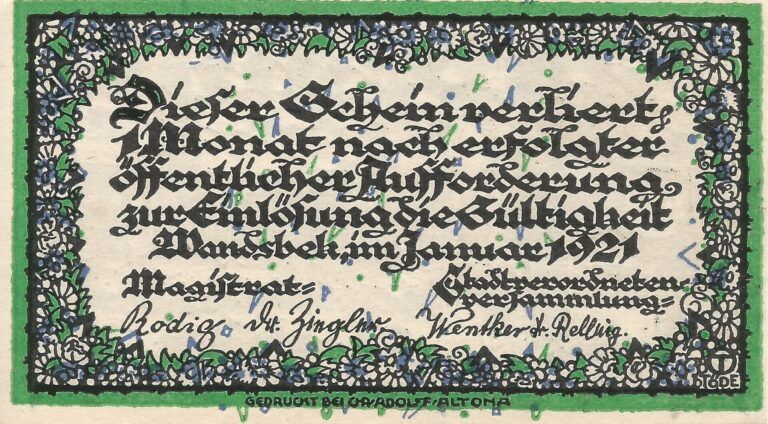 Dieser Schein verliert
1 Monat nach erfolgter
öffentlicher Aufforderung
zur Einlösung die Gültigkeit
Wandsbek, im Januar 1921
Magistrat= Stadtverordneten-
versammlung=
Rodig Dr. Ziegler Wentker Dr. Rellsig.
T
O TÖDE
GEDRUCKT BEI CHR. ADOLFF-ALTONA